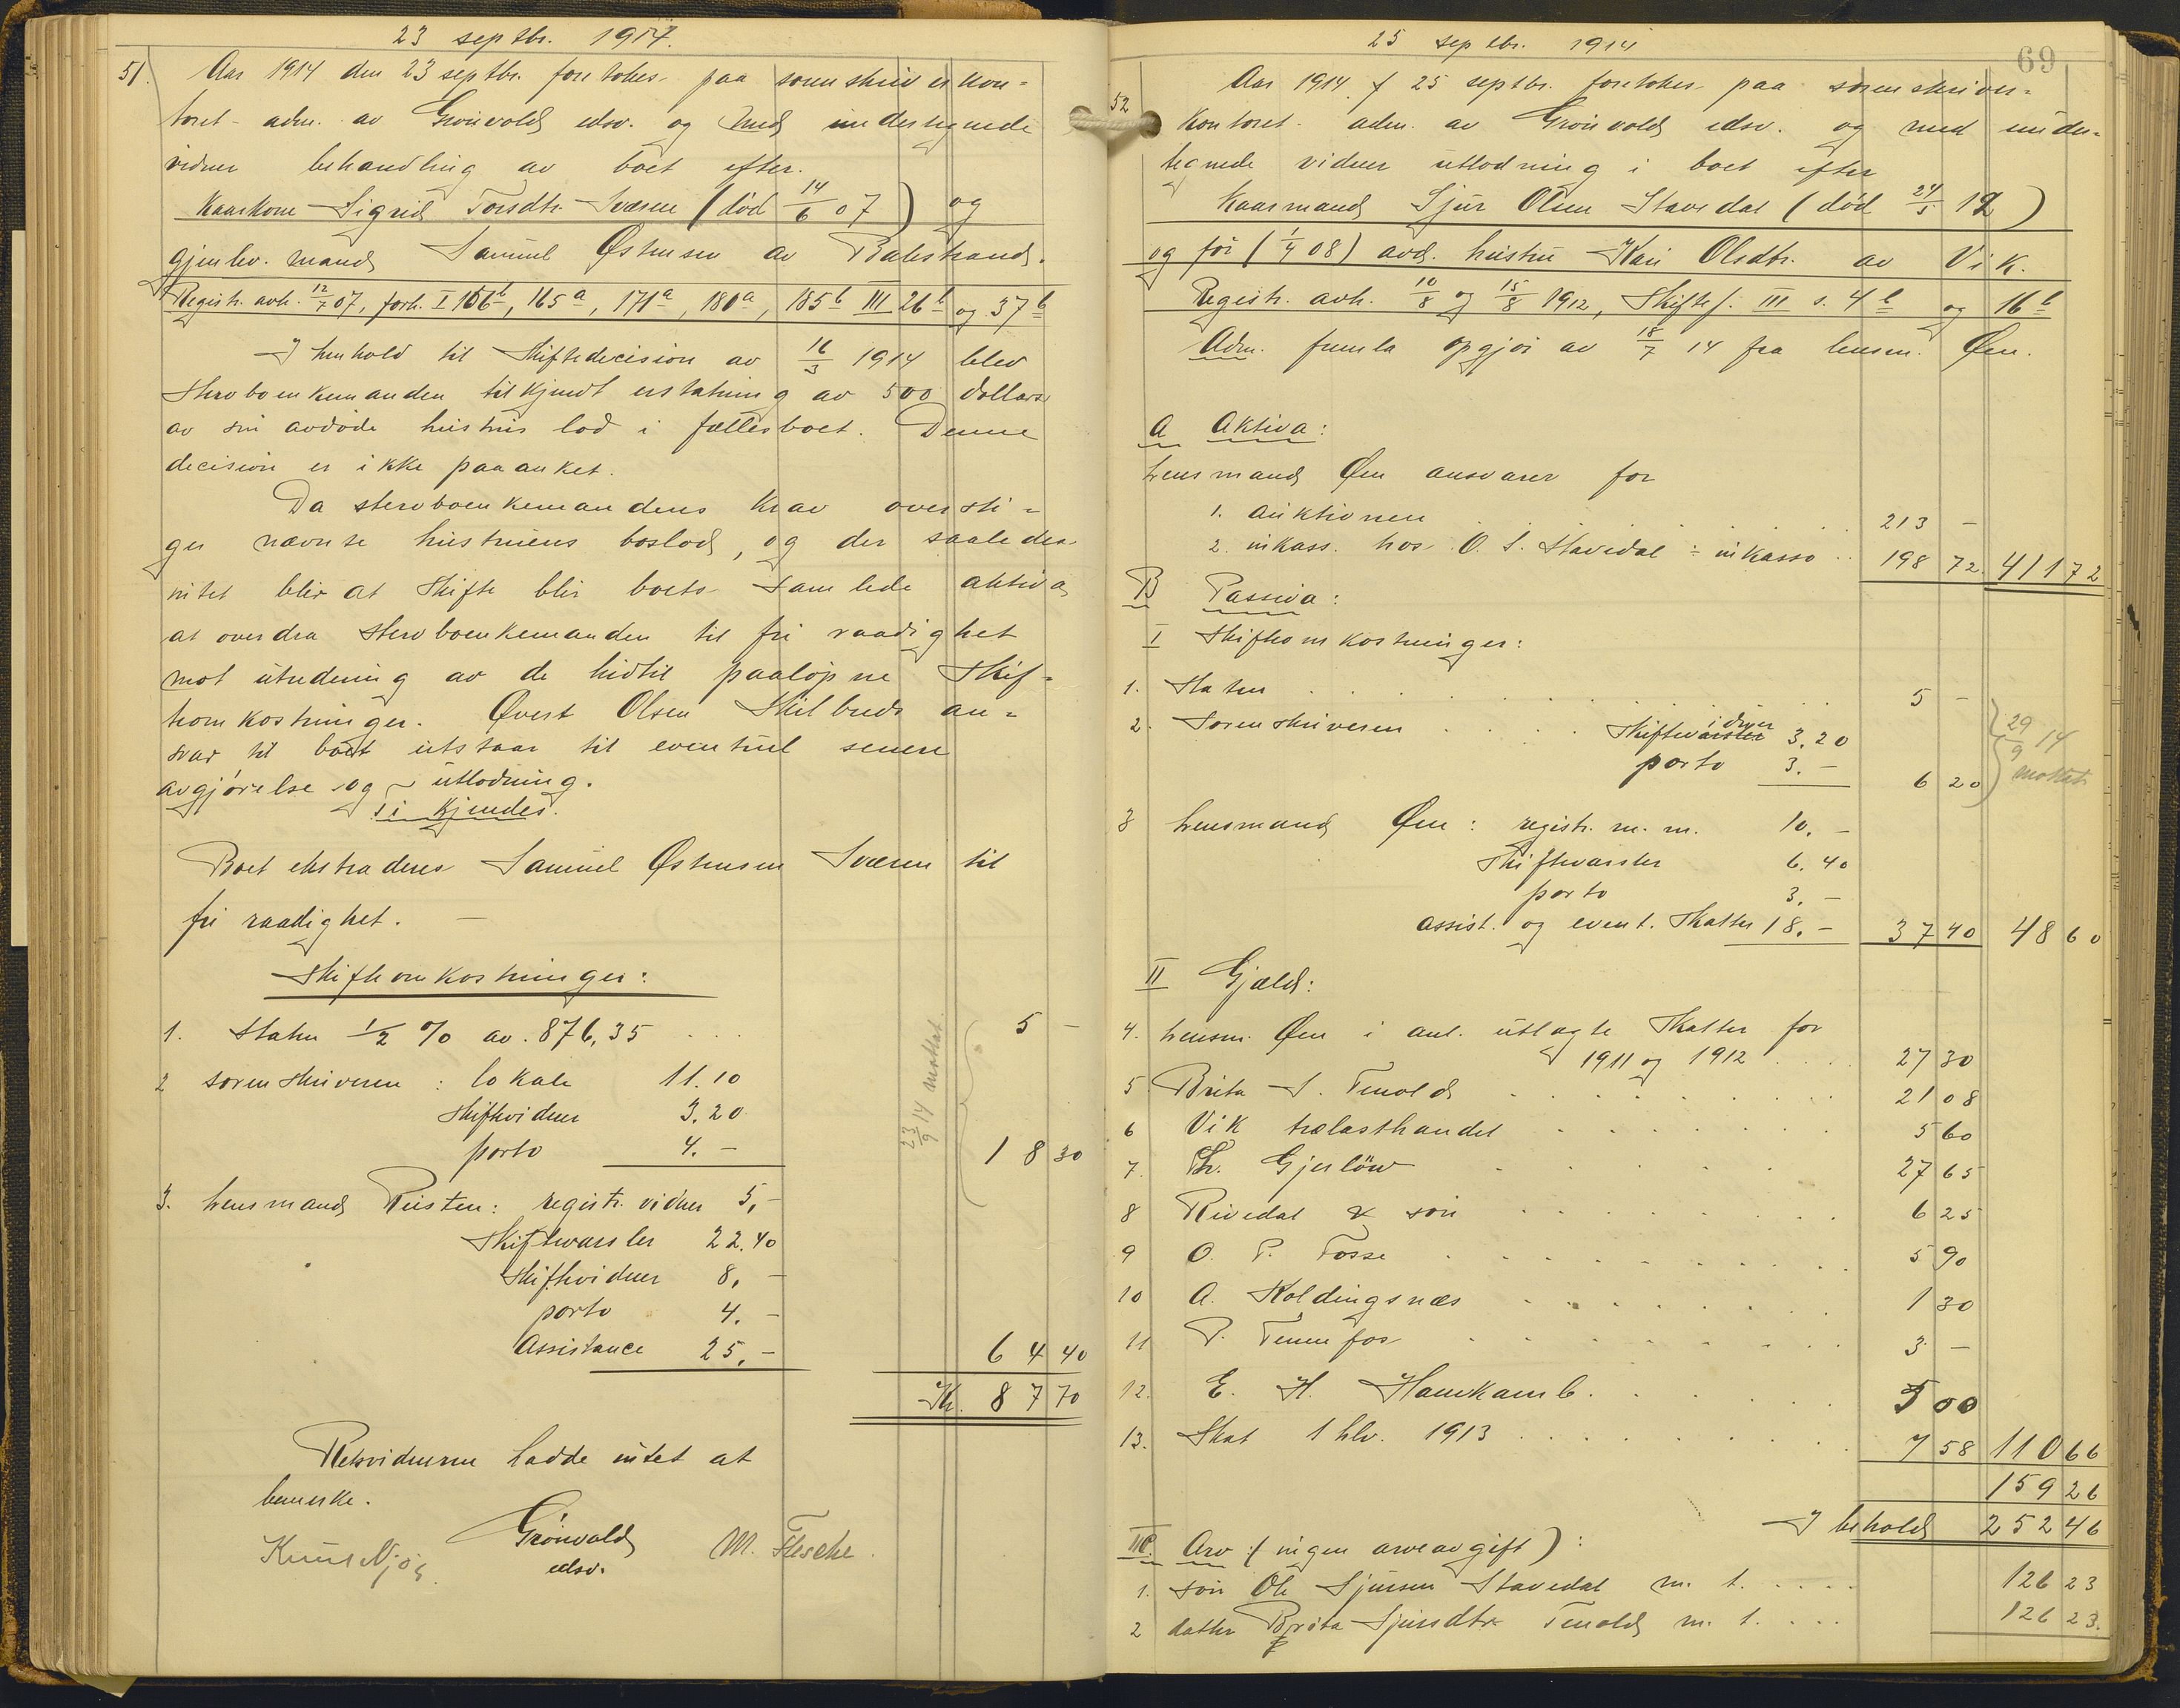 23 septbr. 1914.
51. Aar 1914 den 23 septbr. foretokes paa sorenskriverkon-
toret adm. av Grönvold edsv. og med undertegnede
vidner behandling av boet efter
Kaarkone Sigrid Torsdtr. Sværen (död 14/6 07) og
gjenlev. mand Samuel Østensen av Balestrand.
Registr. avh. 12/7 07, forh. I 156 b, 165 a, 171 a, 180 a, 185 b III 26 b og 37 b
I henhold til skiftedecision av 16/3 1914 blev
stervboenkemanden tilkjendt erstatning av 500 dollars
av sin avdöde hustrus lod i fællesboet. Denne
decision er ikke paaanket.
Da stervboenkemandens krav oversti-
ger nævnte hustruens boslod, og der saaledes
intet blir at skifte blir boets samlede aktiva
at overdra stervboenkemanden til fri raadighet
mot utredning av de hidtil paalöpne skif-
teomkostninger. Øverst Olsen Skilbreds an-
svar til boet utstaar til eventuel senere
avgjörelse og utlodning.
ti kjendes.
Boet ekstraderes Samuel Østensen Sværen til
fri raadighet. —
Skifteomkostninger:
1. Staten 1/2 % av 876,35 ... 5 -
2 sorenskriveren: lokale 11.10
skiftevidner 3.20
porto 4.- 18 30
23/9 14 mottat.
3. Lensmand Risten: registr. vidner 5,-
Skiftevarsler 22.40
skiftevidner 8,-
porto 4.-
Assistance 25,- 64 40
Kr. 87 70
Retsvidnerne hadde intet at
bemerke.
Grönvold
edsv.
Knut Njös. M. Flesche.
69
25 septbr. 1914
52 Aar 1914 f 25 septbr. foretokes paa sorenskriver-
kontoret adm. av Grönvold edsv. og med under-
tegnede vidner utlodning i boet efter
Kaarmand Sjur Olsen Stavedal (död 24/5 12)
og för (1/4 08) avd. hustru Kari Olsdtr. av Vik.
Registr. avh. 10/8 og 15/8 1912, Skiftef. III s. 4 b og 16 b
Adm. fremla opgjör av 18/7 14 fra lensm. Øen.
A Aktiva:
Lensmand Øen ansvarer for
1. auktionen ... 213 -
2. inkass. hos O. S. Stavedal ÷ inkasso .. 198 72 411 72
B Passiva:
I Skifteomkostninger:
1. Staten ... 5 -
2. Sorenskriveren .... Skiftevidner 3.20
porto 3.- 6 20
29/9 14 mottat
3 Lensmand Øen: registr. m. m. 10.-
Skiftevarsler 6.40
porto 3.-
assist. og event. skatter 18.- 37 40 48 60
II Gjæld:
4. Lensm. Øen i anl. utlagte skatter for
1911 og 1912 ... 27 30
5 Brita S. Tenold ... 21 08
6 Vik trælasthandel ... 5 60
7. Th. Gjerlöw ... 27 65
8 Rivedal & sön ... 6 25
9 O. P. Fosse ... 5 90
10 A. Koldingsnæs ... 1 30
11 P. Tennefos ... 3 -
12. E. H. Hamkamb. ... 5 00
13. Skat 1 hlv. 1913 ... 7 58 110 66
159 26
I behold 252 46
III Arv (ingen arveavgift):
1. sön Ole Sjursen Stavedal m. l. .... 126 23
2 datter Brita Sjursdtr. Tenold m. l. .... 126 23.